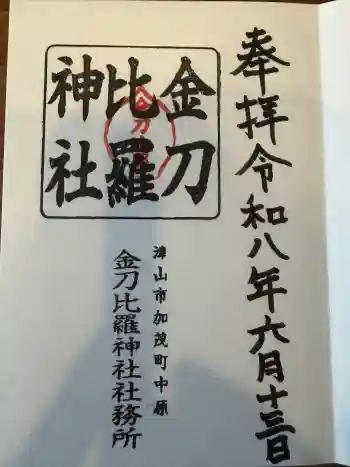 奉拝令和八年六月十三日
金刀
比羅
神社
津山市加茂町中原
金刀比羅神社社務所